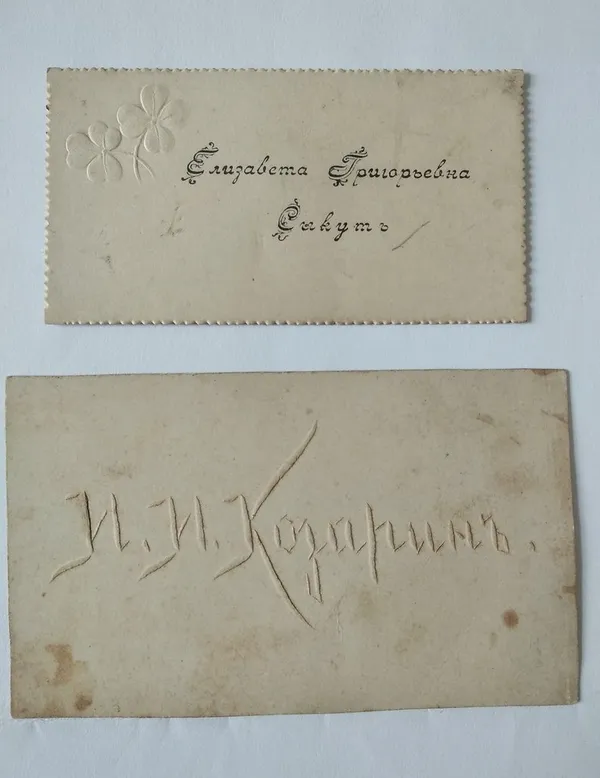 Елизавета Григорьевна
Сыкутъ
И. И. Козаринъ.